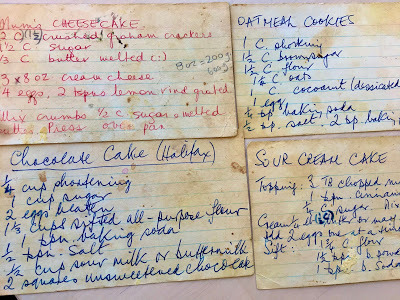 Mum's CHEESECAKE
2 C (1½) crushed graham crackers
1½ C sugar
½ C butter melted
8oz = 200g
600g
3 x 8oz cream cheese
4 eggs, 2 tspns lemon rind grated
Mix crumbs ½ C sugar & melted
butter. Press over pan
OATMEAL COOKIES
1 C. shortening
1½ C brown sugar
1½ C flour
1½ C oats
C. cocoanut (dessicated
1 egg
tsp baking soda
½ tsp. salt. 2 tsp. baking
Chocolate Cake (Halifax)
¼ cup shortening
1 cup sugar
2 eggs beaten
1⅓ cups sifted all-purpose flour
1 tspn. baking soda
½ tspn. salt
½ cup sour milk or buttermilk
2 squares unsweetened chocolate
SOUR CREAM CAKE
Topping: 3 TB chopped nu
1 tspn. cinnamon
C sugar. Mix
Cream
Add 2 eggs one at a time
Sift: 1½ C. flour
1½ tspn b. powd
1 tspn b. soda